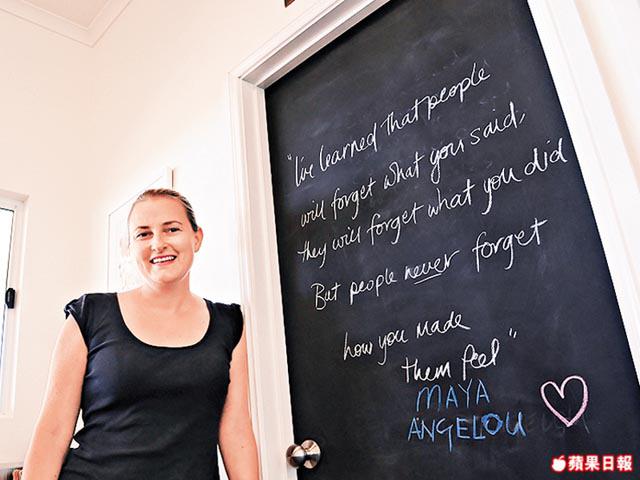 "I've learned that people
will forget what you said,
they will forget what you did
But people never forget
how you made
them feel"
MAYA
ANGELOU
蘋果日報